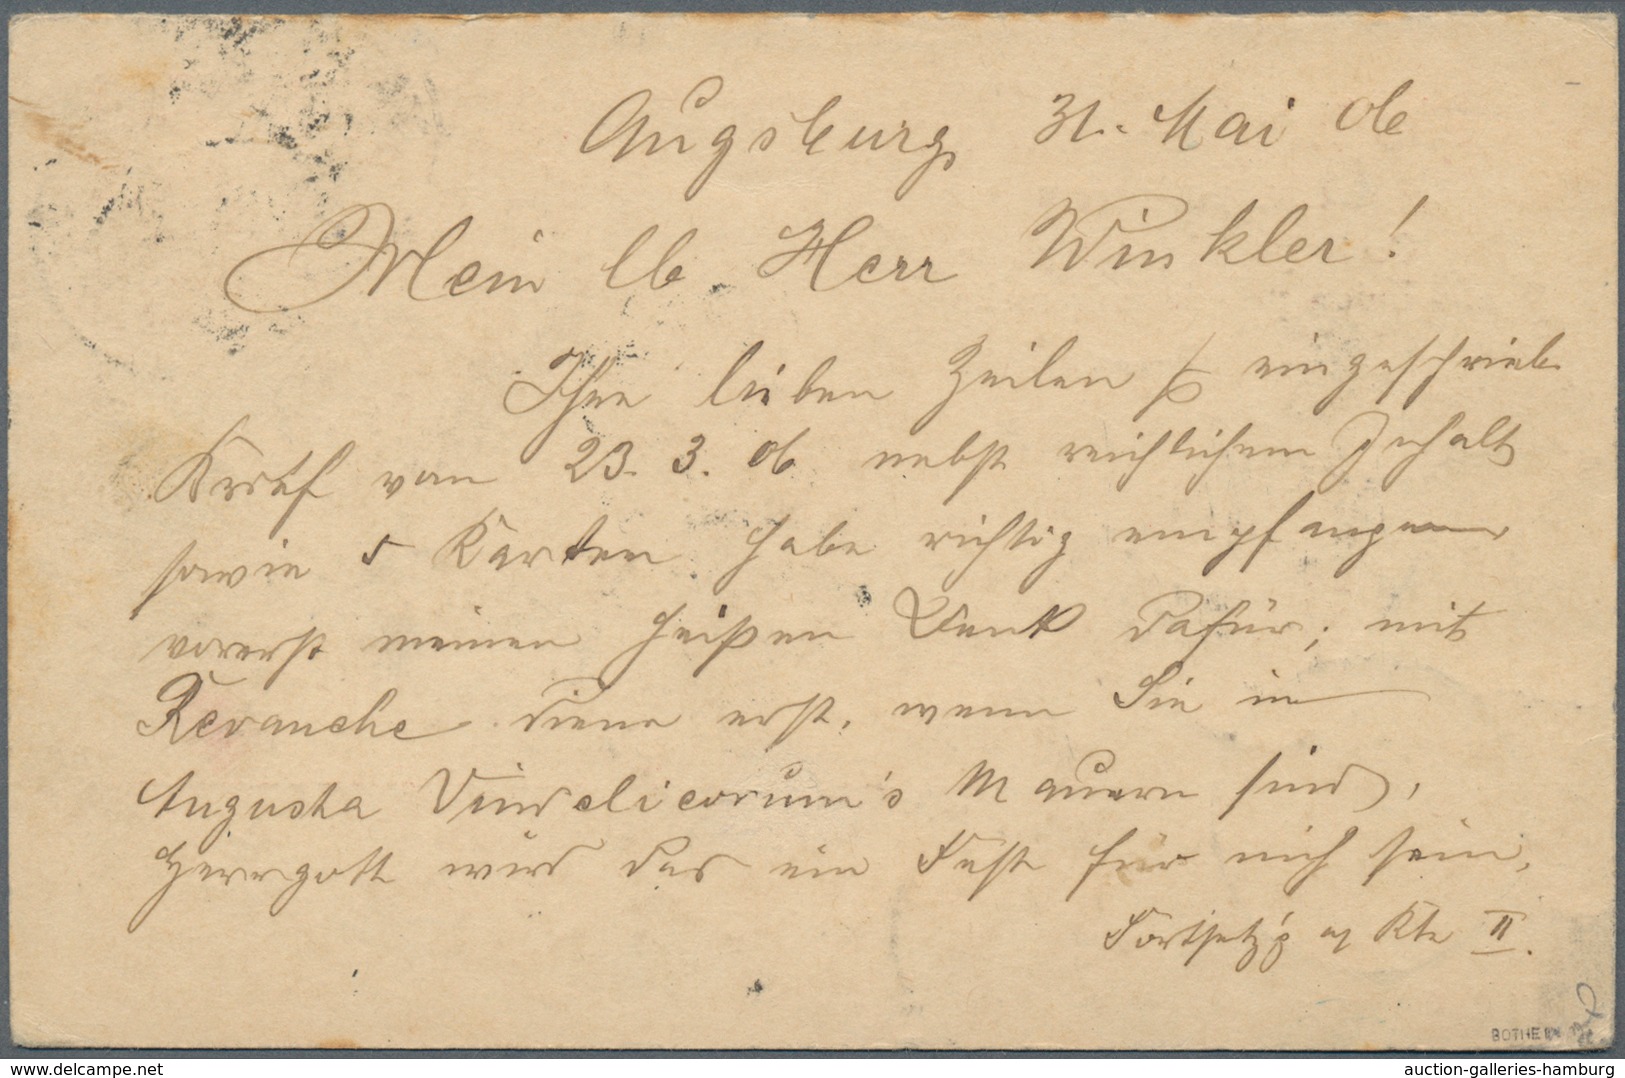 Augsburg, 31. Mai 06
Mein lb. Herr Winkler!
Ihre lieben Zeilen eingeschrieb.
Brief vom 23. 3. 06 nebst reichlichem Inhalt
sowie 5 Karten habe richtig empfangen
vorerst meinen heißen Dank dafür; mit
Revanche diene erst, wenn Sie in
Augusta Vindelicorum's Mauern sind,
Herrgott wird das ein Fest für mich sein.
Fortsetz'g a/ Kte II.
BOTHE
www.delcampe.net
auction-galleries-hamburg